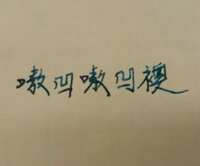 嗷凹嗷凹襖